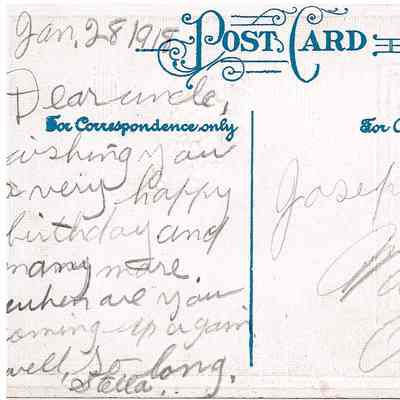 Jan. 28 1918
POST CARD
Dear uncle,
For Correspondence only
wishing you
a very happy
birthday and
many more.
when are you
coming up again
well, So long.
Stella.
For
Joseph